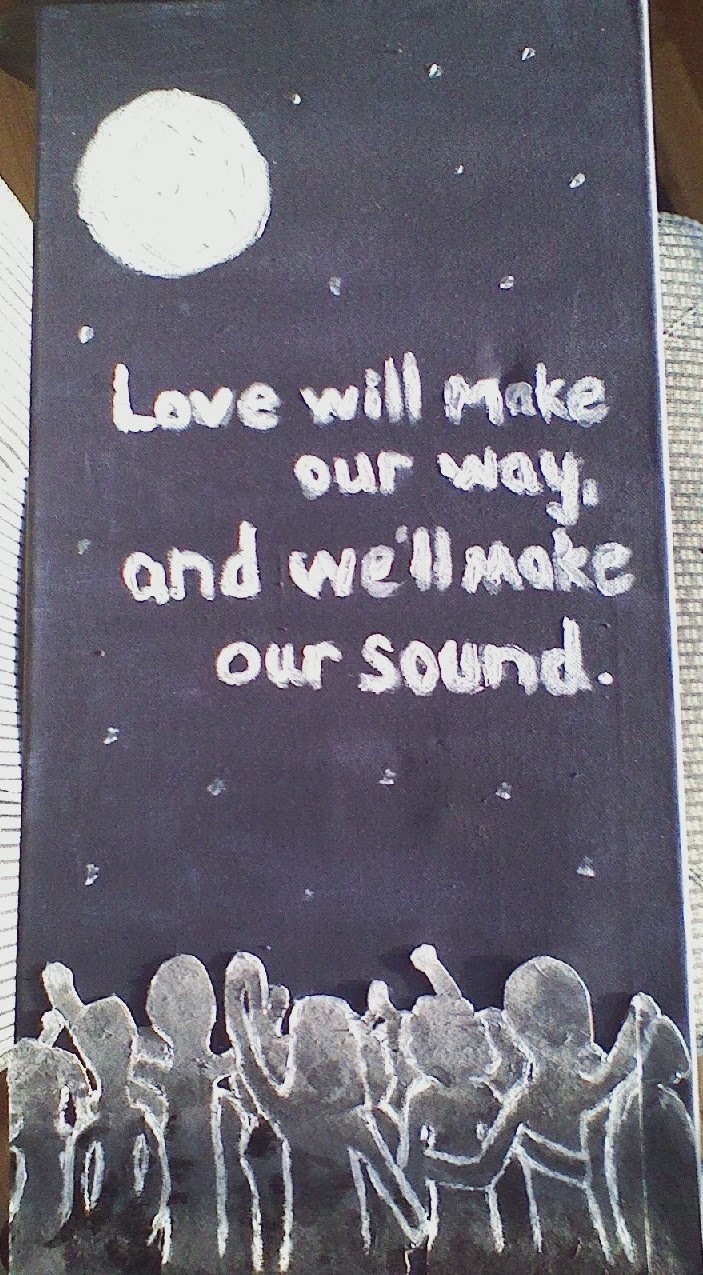 Love will make
our way,
and we'll make
our sound.